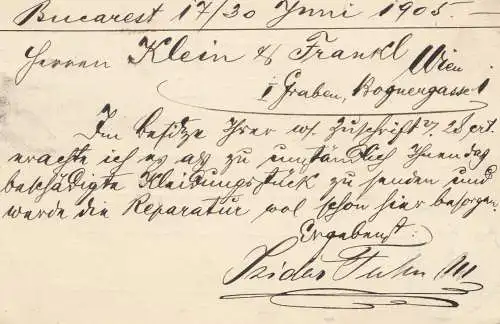 Bucarest 17/30 Juni 1905.
Herren Klein & Frankl
Wien
I Graben, Bognergasse 1
Im Besitze Ihrer w. Zuschrift v. 28 crt.
erachte ich es als zu umständlich Ihnen das
beschädigte Kleidungsstück zu senden und
werde die Reparatur wol schon hier besorgen
Ergebenst:
Isidor